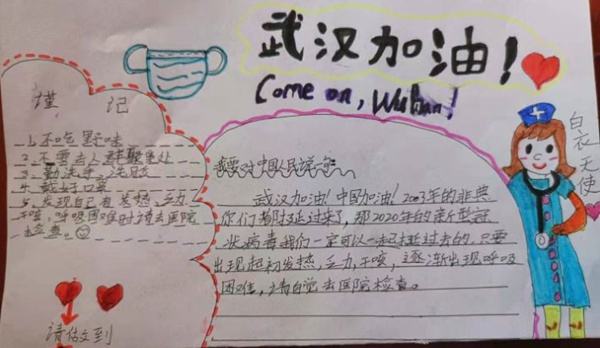 武汉加油！
Come on, Wuhan!
谨记
1、不吃野味
2、不要去人群聚集处
3、勤洗手、洗
4、戴好口罩
5、发现自己有发热、乏力、
干咳，呼吸困难时请去医院
检查。
请做到
我要对中国人民说一
武汉加油！中国加油！2003年的非典
你们都挺过来了，那2020年的新型冠
状病毒我们一定可以一起挺过去的，只要
出现起初发热，乏力，干咳，逐渐出现呼吸
困难，请自觉去医院检查。
白衣天使